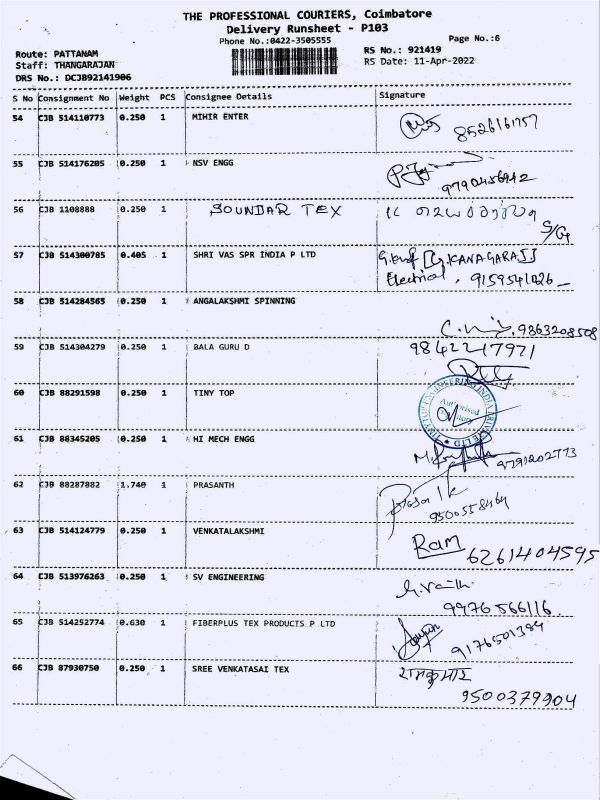 THE PROFESSIONAL COURIERS, Coimbatore
Delivery Runsheet - P103
Phone No.:0422-3505555
Page No.:6
Route: PATTANAM
Staff: THANGARAJAN
DRS No.: DCJB92141906
RS No.: 921419
RS Date: 11-Apr-2022
S No Consignment No Weight PCS Consignee Details Signature
54 CJB 514110773 0.250 1 MIHIR ENTER
8526161757
55 CJB 514176205 0.250 1 NSV ENGG
9790456942
56 CJB 1108888 0.250 1 SOUNDAR TEX
S/G
57 CJB 514300785 0.405 1 SHRI VAS SPR INDIA P LTD [G.KANAGARAJ]
Electrical, 9159541026
58 CJB 514284565 0.250 1 ANGALAKSHMI SPINNING
9863208508
59 CJB 514304279 0.250 1 BALA GURU D 9842217971
60 CJB 88291598 0.250 1 TINY TOP
TINY TOP ENGINEERING INDIA PRIVATE LTD
Authorised
61 CJB 88345205 0.250 1 HI MECH ENGG
9791202773
62 CJB 88287882 1.740 1 PRASANTH
9500558464
63 CJB 514124779 0.250 1 VENKATALAKSHMI Ram
6261404595
64 CJB 513976263 0.250 1 SV ENGINEERING
9976566116
65 CJB 514252774 0.630 1 FIBERPLUS TEX PRODUCTS P LTD
9176501384
66 CJB 87930750 0.250 1 SREE VENKATASAI TEX रामकुमार
9500379904